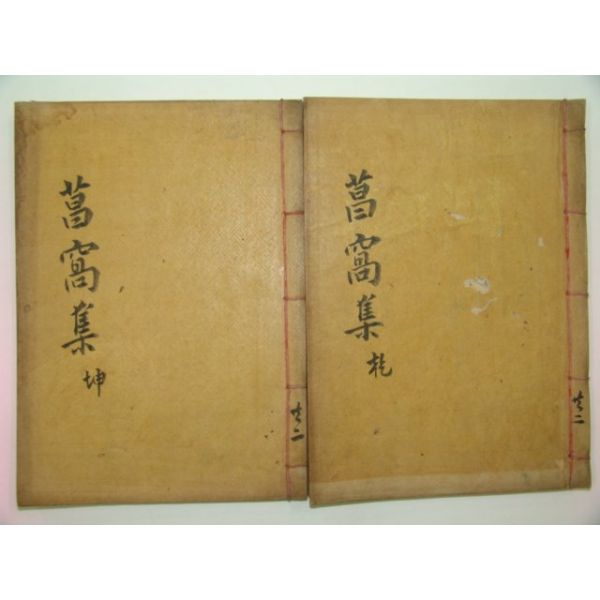 菖窩集
坤
共二
菖窩集
乾
共二